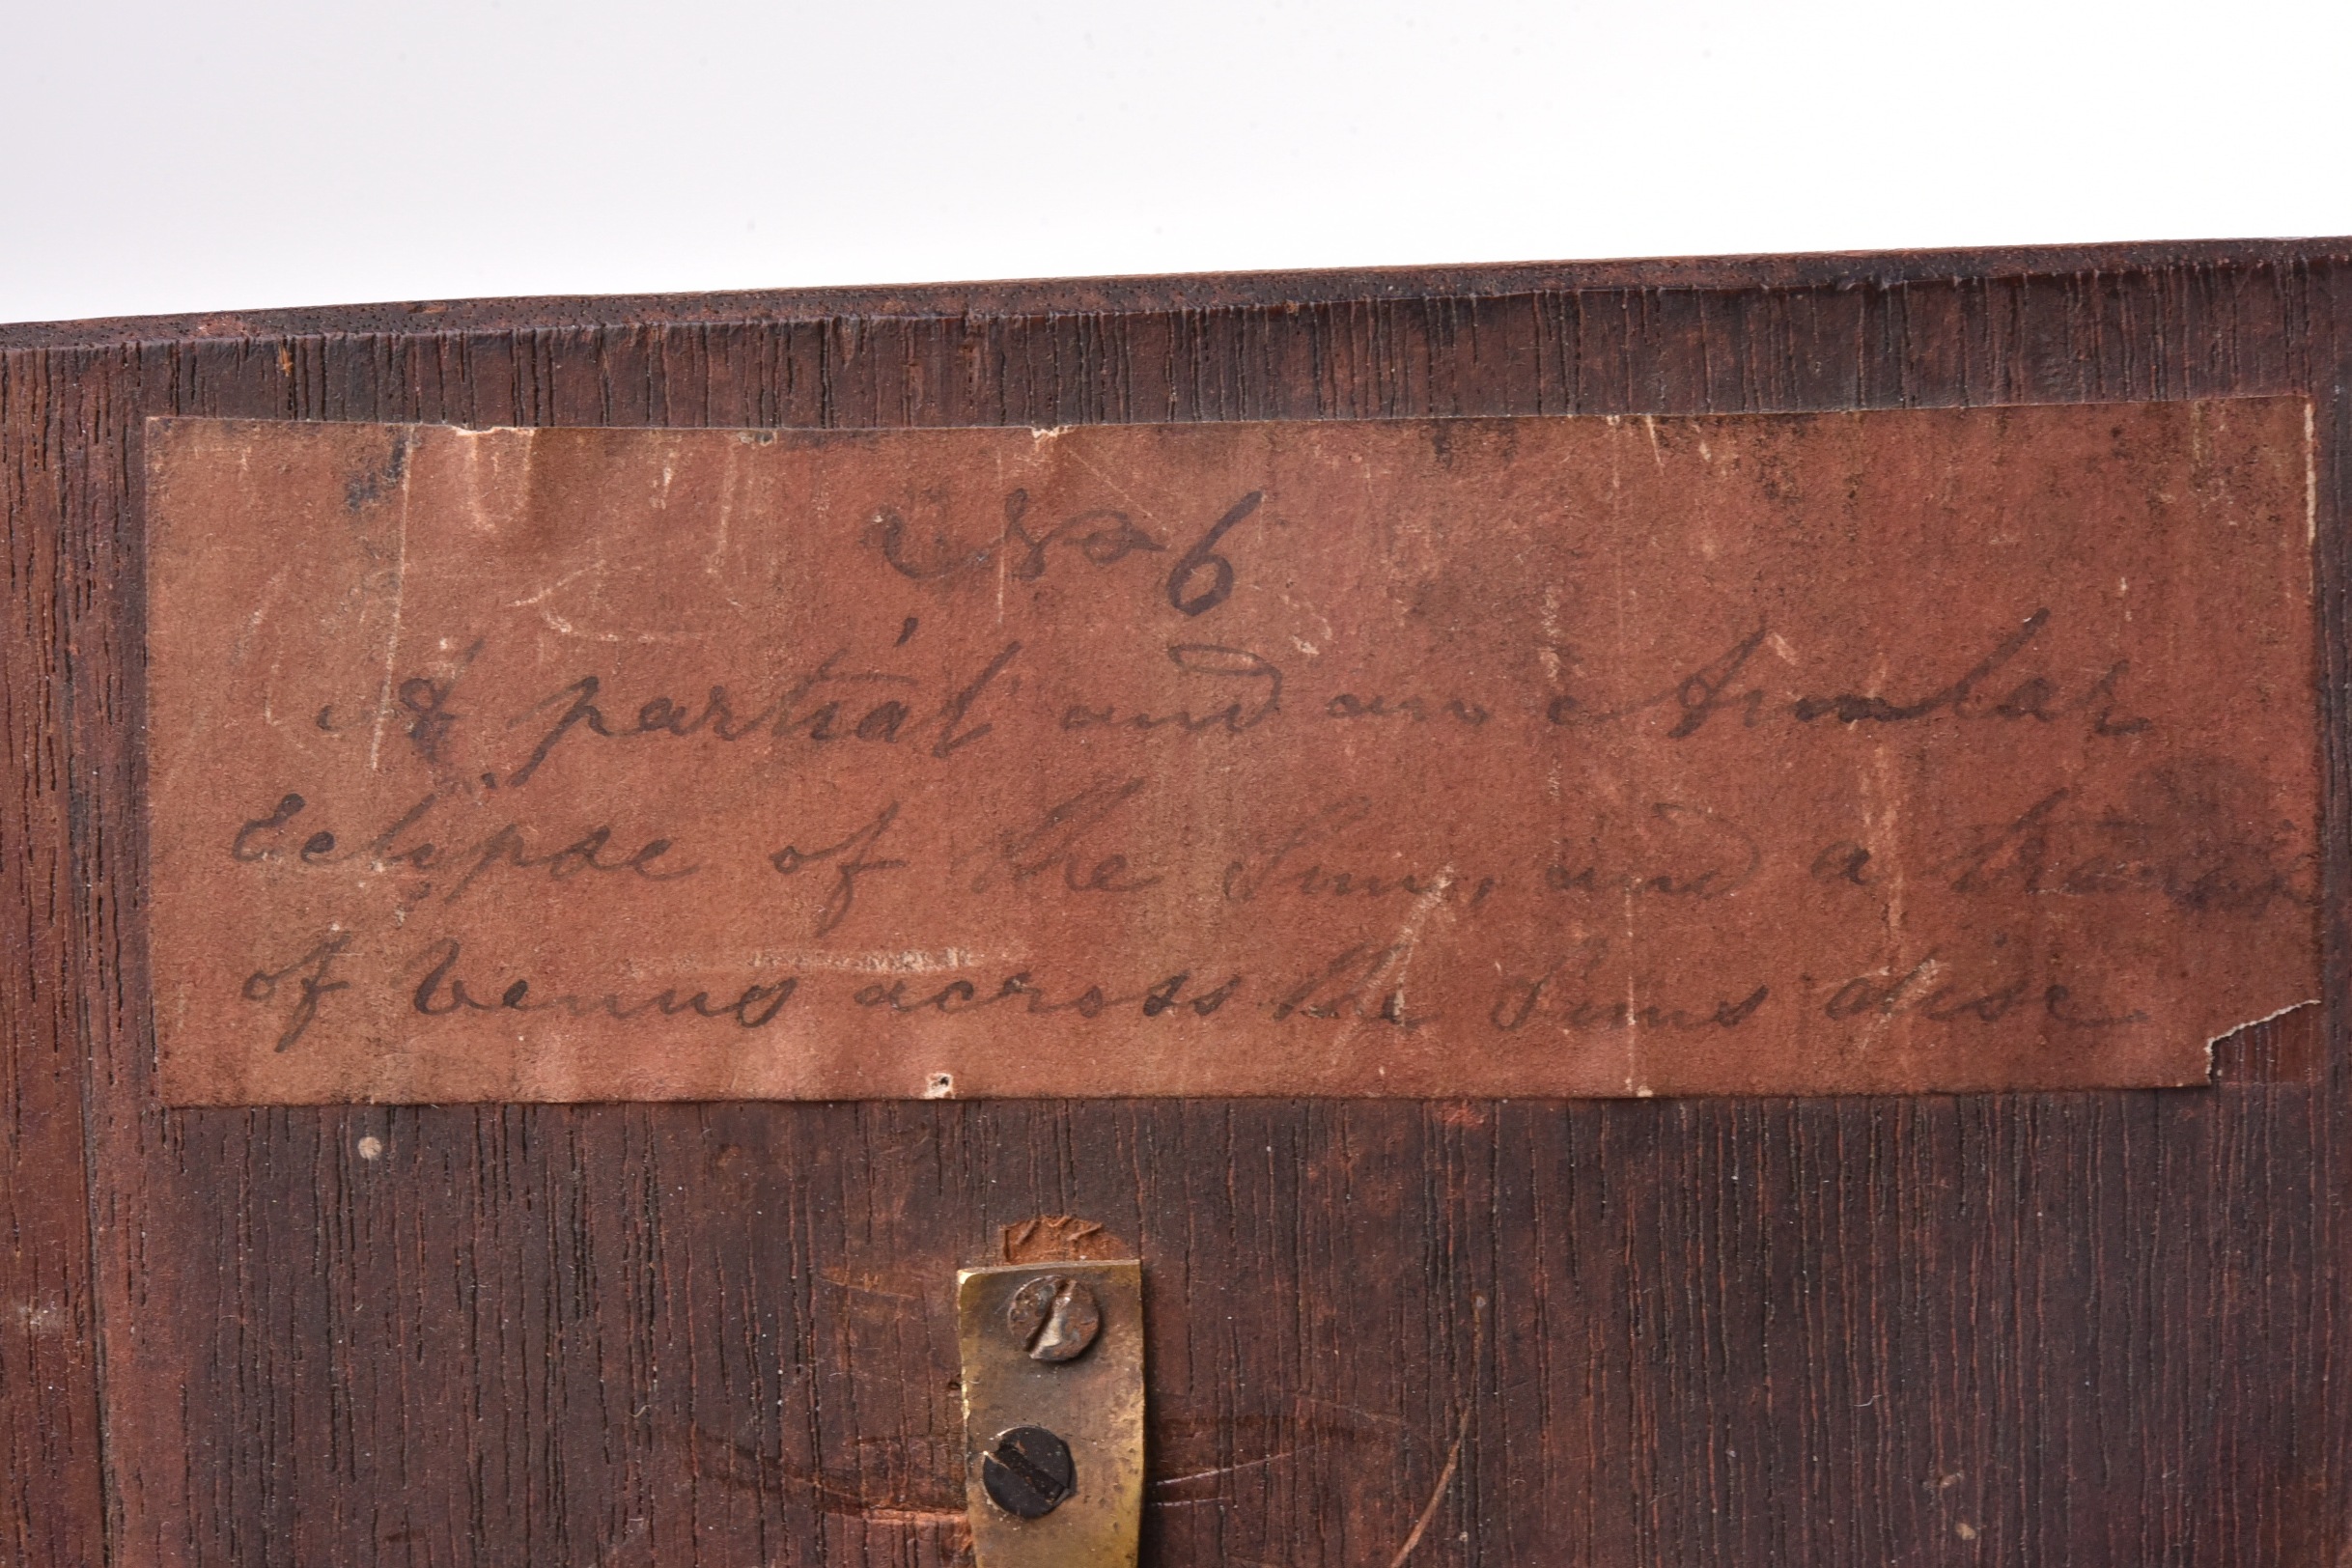 No 6
A partial and an Anular
Eclipse of the Sun, and a transit
of Venus across the Suns disc